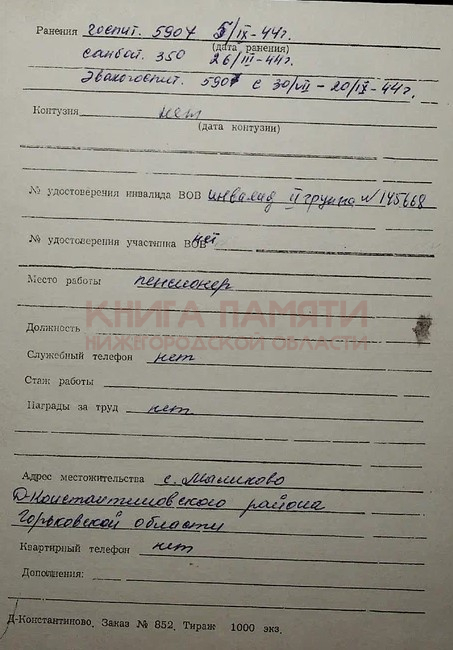 Ранения госпит. 5907 5/IX-44г.
(дата ранения)
санбат. 350 26/III-44г.
Эвакогоспит. 5907 с 30/VII - 20/IX-44г.
Контузия нет
(дата контузии)
№ удостоверения инвалида ВОВ инвалид II группа № 145668
№ удостоверения участника ВОВ нет
Место работы пенсионер
КНИГА ПАМЯТИ
Должность
НИЖЕГОРОДСКОЙ ОБЛАСТИ
Служебный телефон нет
Стаж работы
Награды за труд нет
Адрес местожительства с.
Д-Константиновского района
Горьковской области
Квартирный телефон нет
Дополнения:
Д-Константиново. Заказ № 852. Тираж 1000 экз.